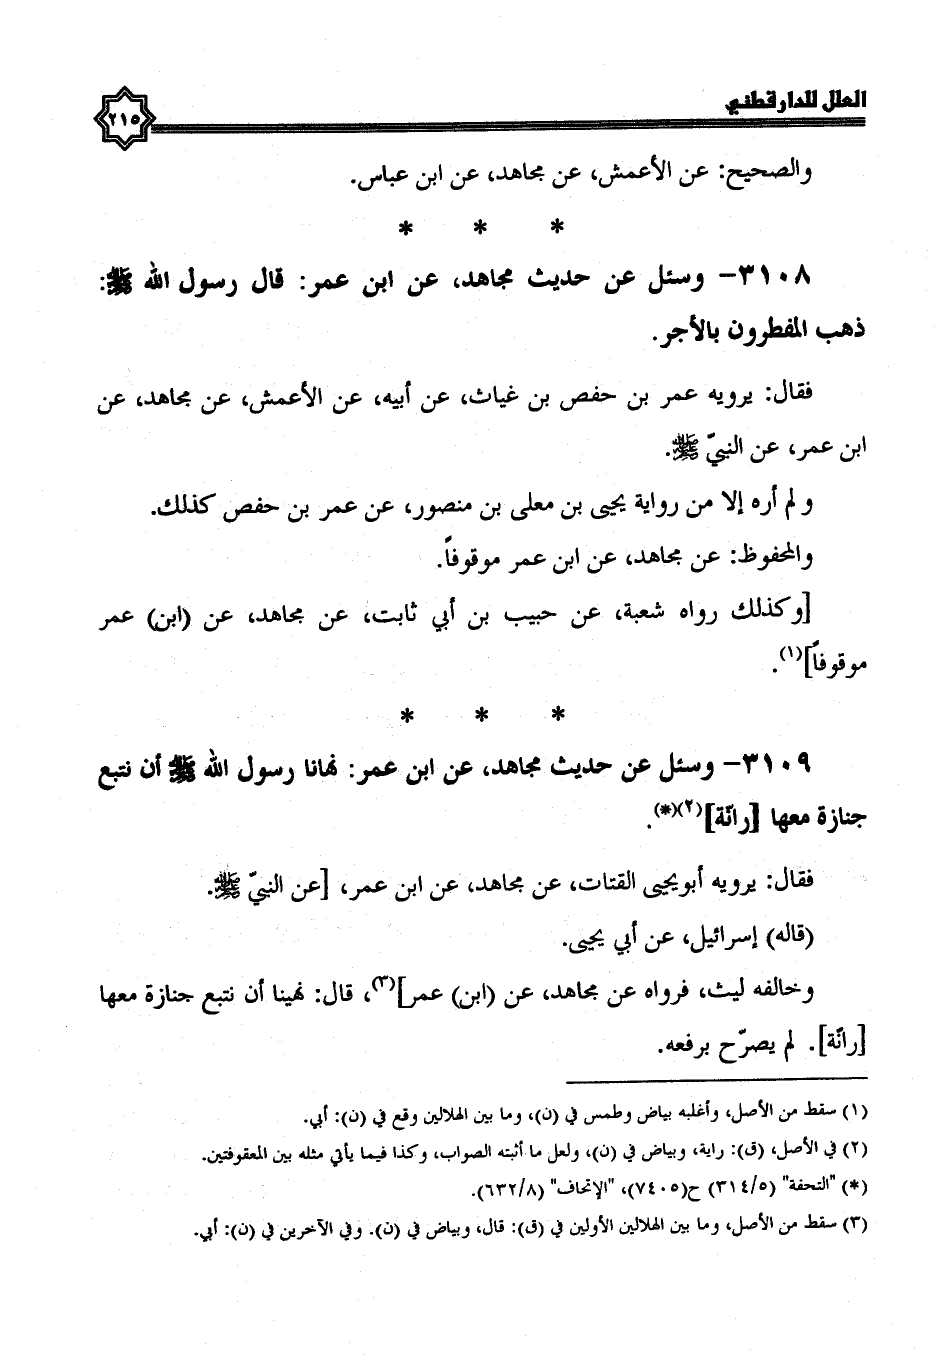 العلل للدارقطني
٢١٥
والصحيح: عن الأعمش، عن مجاهد، عن ابن عباس.
* * *
٣١٠٨- وسئل عن حديث مجاهد، عن ابن عمر: قال رسول الله ﷺ:
ذهب المفطرون بالأجر.
فقال: يرويه عمر بن حفص بن غياث، عن أبيه، عن الأعمش، عن مجاهد، عن
ابن عمر، عن النبيّ ﷺ.
و لم أره إلا من رواية يحيى بن معلى بن منصور، عن عمر بن حفص كذلك.
والمحفوظ: عن مجاهد، عن ابن عمر موقوفاً.
[وكذلك رواه شعبة، عن حبيب بن أبي ثابت، عن مجاهد، عن (ابن) عمر
موقوفاً](١).
* * *
٣١٠٩- وسئل عن حديث مجاهد، عن ابن عمر: نهانا رسول الله ﷺ أن نتبع
جنازة معها [رانّة](٢)(*).
فقال: يرويه أبويحيى القتات، عن مجاهد، عن ابن عمر، [عن النبيّ ﷺ.
(قاله) إسرائيل، عن أبي يحيى.
وخالفه ليث، فرواه عن مجاهد، عن (ابن) عمر](٣)، قال: نهينا أن نتبع جنازة معها
[رانّة]. لم يصرّح برفعه.
(١) سقط من الأصل، وأغلبه بياض وطمس في (ن)، وما بين الهلالين وقع في (ن): أبي.
(٢) في الأصل، (ق): راية، وبياض في (ن)، ولعل ما أثبته الصواب، وكذا فيما يأتي مثله بين المعقوفتين.
(*) "التحفة" (٣١٤/٥) ح(٧٤٠٥)، "الإتحاف" (٦٣٢/٨).
(٣) سقط من الأصل، وما بين الهلالين الأولين في (ق): قال، وبياض في (ن). وفي الآخرين في (ن): أبي.